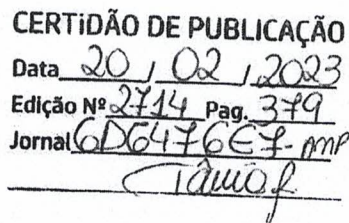 CERTIDÃO DE PUBLICAÇÃO
Data 20 / 02 / 2023
Edição Nº 2714 Pag. 379
Jornal 6D6476E7-AMP